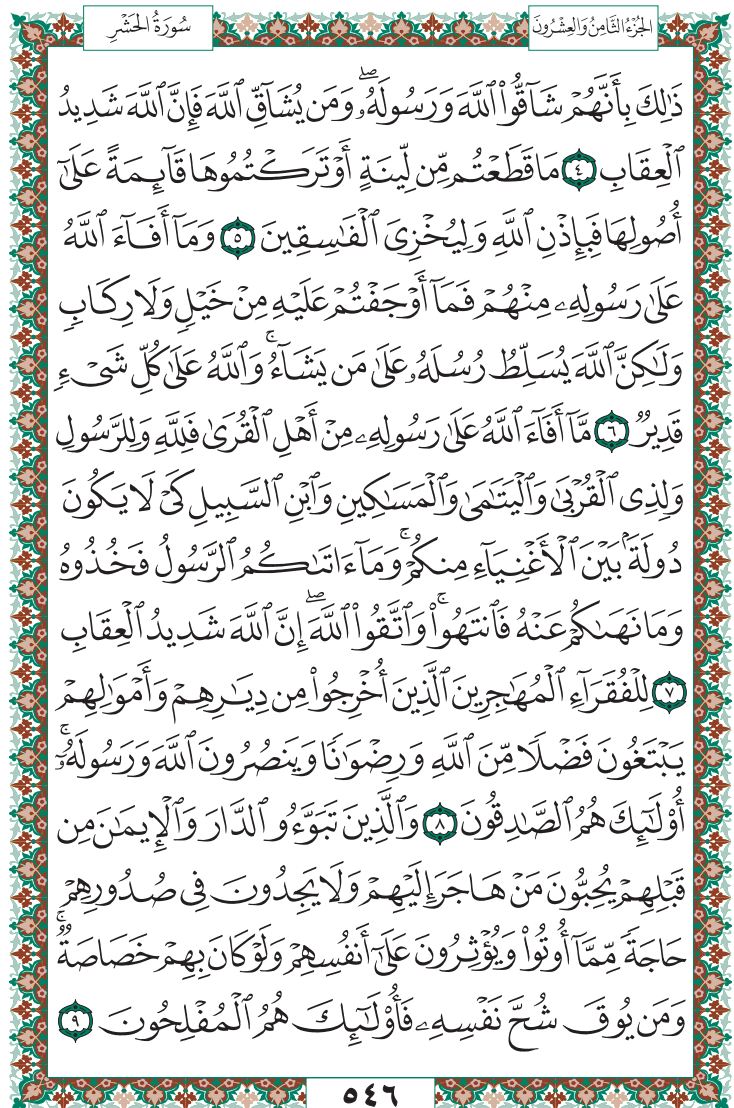 الجُزْءُ الثَّامِنُ وَالعِشْرُونَ
سُورَةُ الحَشْرِ
ذَٰلِكَ بِأَنَّهُمۡ شَآقُّواْ ٱللَّهَ وَرَسُولَهُۥۖ وَمَن يُشَآقِّ ٱللَّهَ فَإِنَّ ٱللَّهَ شَدِيدُ
ٱلۡعِقَابِ ٤ مَا قَطَعۡتُم مِّن لِّينَةٍ أَوۡ تَرَكۡتُمُوهَا قَآئِمَةً عَلَىٰٓ
أُصُولِهَا فَبِإِذۡنِ ٱللَّهِ وَلِيُخۡزِيَ ٱلۡفَٰسِقِينَ ٥ وَمَآ أَفَآءَ ٱللَّهُ
عَلَىٰ رَسُولِهِۦ مِنۡهُمۡ فَمَآ أَوۡجَفۡتُمۡ عَلَيۡهِ مِنۡ خَيۡلٖ وَلَا رِكَابٖ
وَلَٰكِنَّ ٱللَّهَ يُسَلِّطُ رُسُلَهُۥ عَلَىٰ مَن يَشَآءُۚ وَٱللَّهُ عَلَىٰ كُلِّ شَيۡءٖ
قَدِيرٞ ٦ مَّآ أَفَآءَ ٱللَّهُ عَلَىٰ رَسُولِهِۦ مِنۡ أَهۡلِ ٱلۡقُرَىٰ فَلِلَّهِ وَلِلرَّسُولِ
وَلِذِي ٱلۡقُرۡبَىٰ وَٱلۡيَتَٰمَىٰ وَٱلۡمَسَٰكِينِ وَٱبۡنِ ٱلسَّبِيلِ كَيۡ لَا يَكُونَ
دُولَةَۢ بَيۡنَ ٱلۡأَغۡنِيَآءِ مِنكُمۡۚ وَمَآ ءَاتَىٰكُمُ ٱلرَّسُولُ فَخُذُوهُ
وَمَا نَهَىٰكُمۡ عَنۡهُ فَٱنتَهُواْۚ وَٱتَّقُواْ ٱللَّهَۖ إِنَّ ٱللَّهَ شَدِيدُ ٱلۡعِقَابِ
٧ لِلۡفُقَرَآءِ ٱلۡمُهَٰجِرِينَ ٱلَّذِينَ أُخۡرِجُواْ مِن دِيَٰرِهِمۡ وَأَمۡوَٰلِهِمۡ
يَبۡتَغُونَ فَضۡلٗا مِّنَ ٱللَّهِ وَرِضۡوَٰنٗا وَيَنصُرُونَ ٱللَّهَ وَرَسُولَهُۥٓۚ
أُوْلَٰٓئِكَ هُمُ ٱلصَّٰدِقُونَ ٨ وَٱلَّذِينَ تَبَوَّءُو ٱلدَّارَ وَٱلۡإِيمَٰنَ مِن
قَبۡلِهِمۡ يُحِبُّونَ مَنۡ هَاجَرَ إِلَيۡهِمۡ وَلَا يَجِدُونَ فِي صُدُورِهِمۡ
حَاجَةٗ مِّمَّآ أُوتُواْ وَيُؤۡثِرُونَ عَلَىٰٓ أَنفُسِهِمۡ وَلَوۡ كَانَ بِهِمۡ خَصَاصَةٞۚ
وَمَن يُوقَ شُحَّ نَفۡسِهِۦ فَأُوْلَٰٓئِكَ هُمُ ٱلۡمُفۡلِحُونَ ٩
٥٤٦